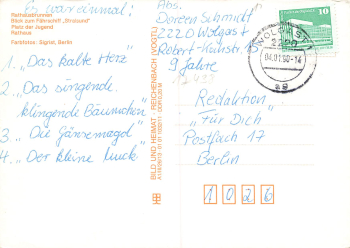 Es war einmal:
Rathausbrunnen
Blick zum Fährschiff „Stralsund“
Platz der Jugend
Rathaus
Farbfotos: Sigtet, Berlin
1. „Das kalte Herz“
2. „Das singende,
klingende Bäumchen“
3. „Die Gänsemagd“
4. „Der kleine Muck“
BILD UND HEIMAT REICHENBACH (VOGTL)
Abs.
Doreen Schmidt
2220 Wolgast
9 Jahre
WOLGAST 1
2220
04.01.90-14
ag
10
DDR
Redaktion
„Für Dich“
Postfach 17
Berlin
1026